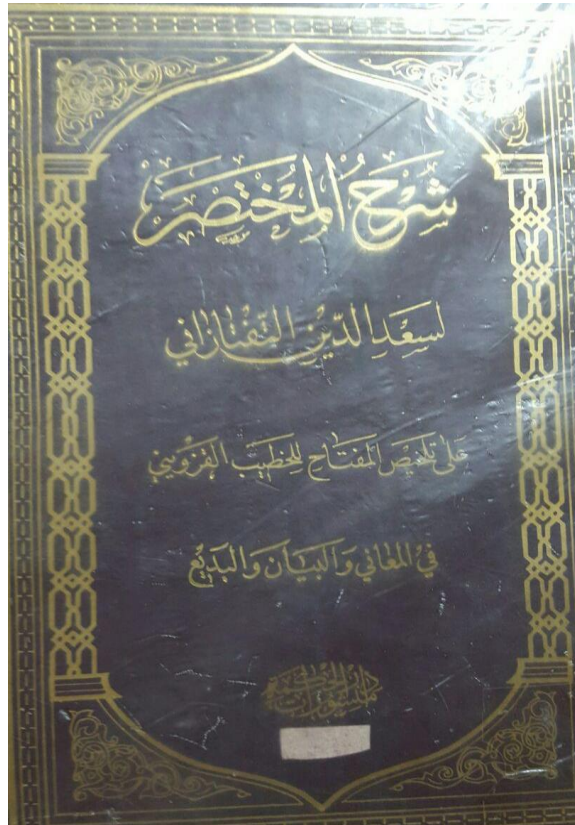 شَرْحُ الْمُخْتَصَر
لِسَعْدِ الدِّينِ التَّفْتَازَانِي
عَلَى تَلْخِيصِ الْمِفْتَاحِ لِلْخَطِيبِ الْقَزْوِينِي
فِي الْمَعَانِي وَالْبَيَانِ وَالْبَدِيعِ